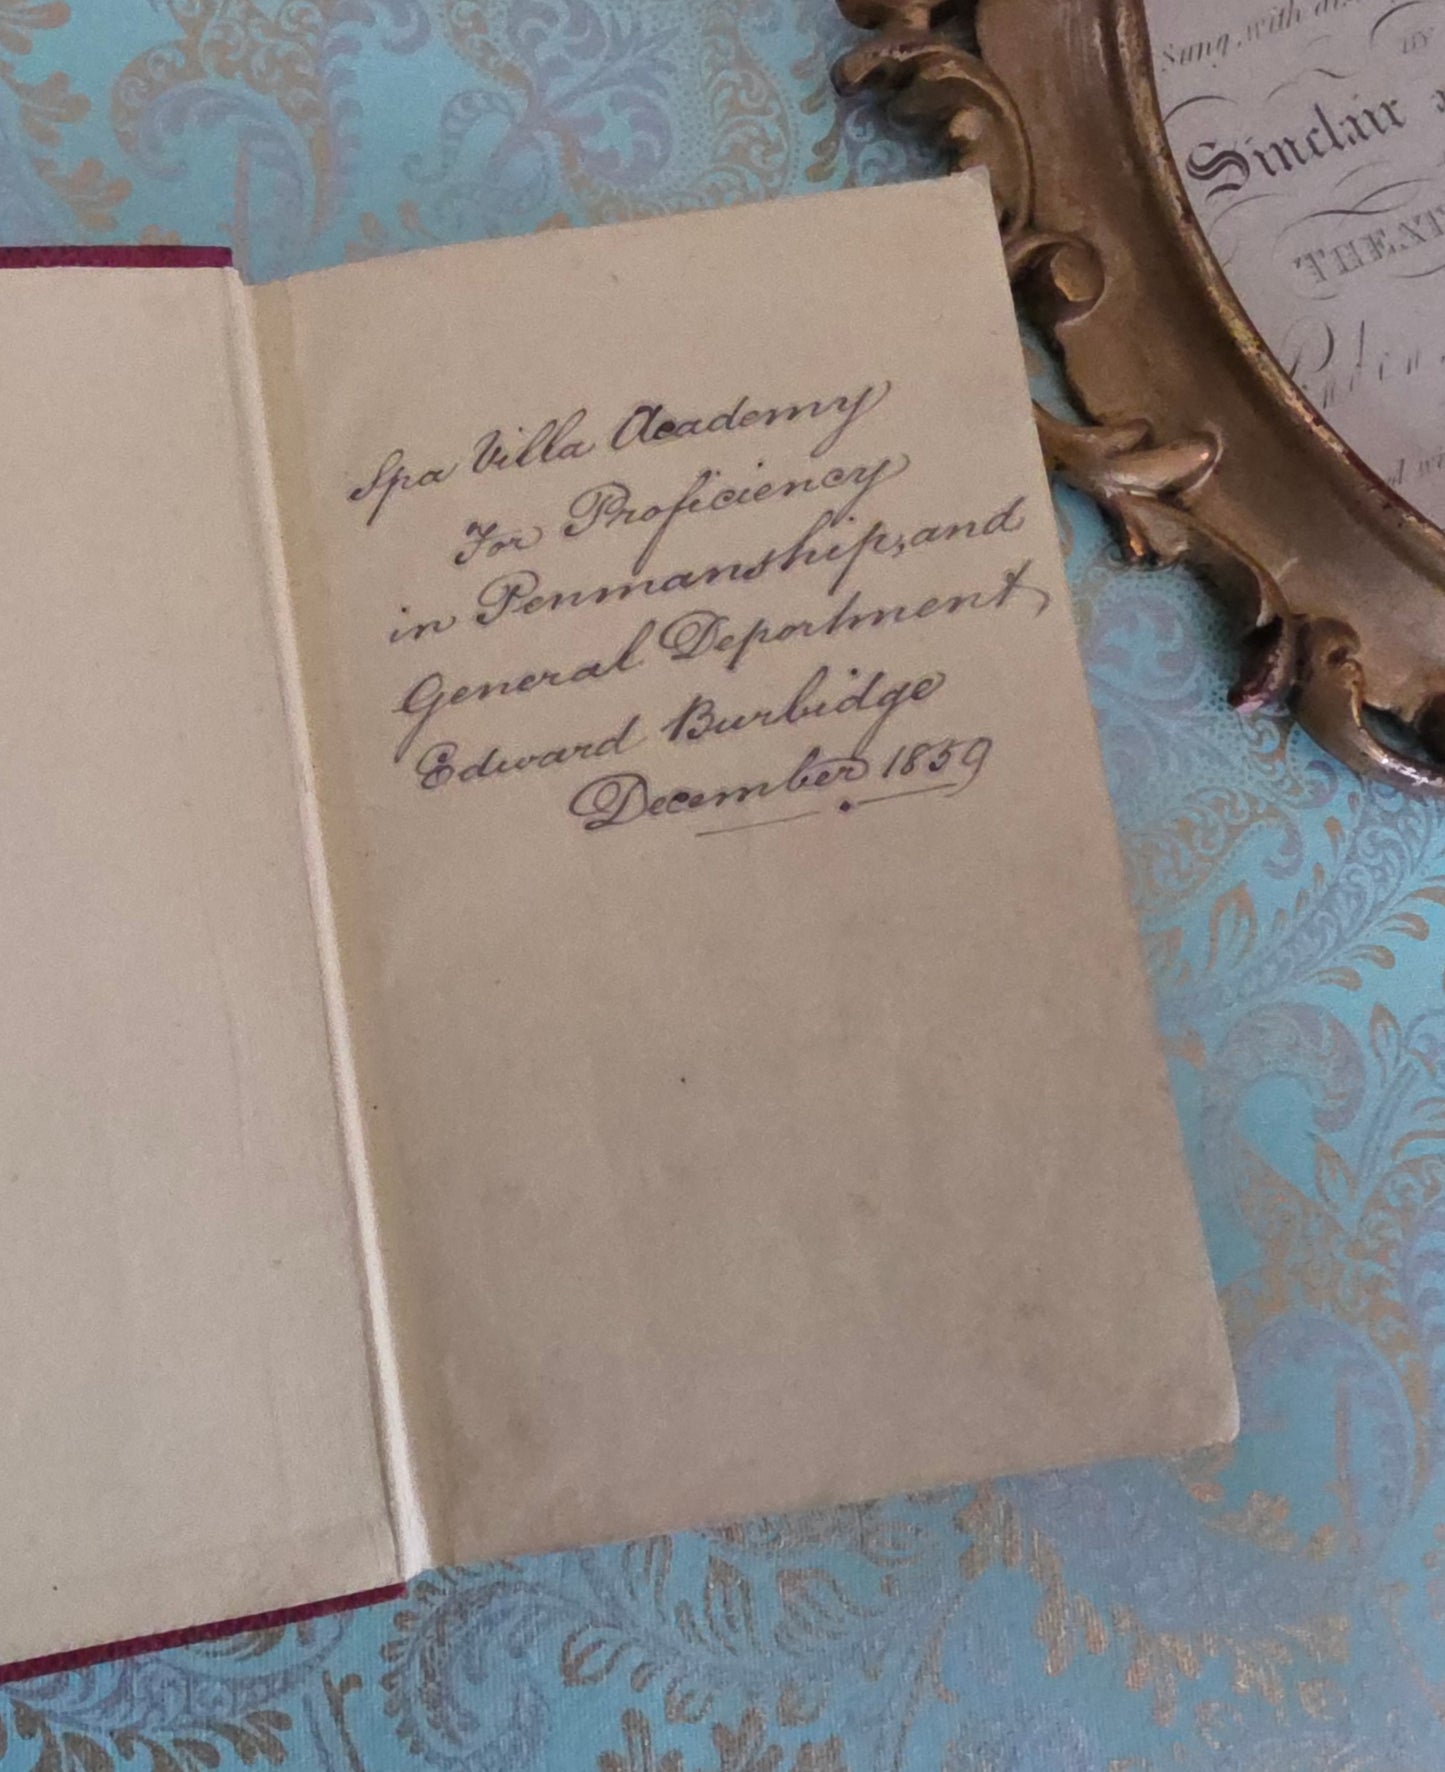 Spa Villa Academy
For Proficiency
in Penmanship, and
General Deportment
Edward Burbidge
December 1859
Sung, with
BY
Sinclair